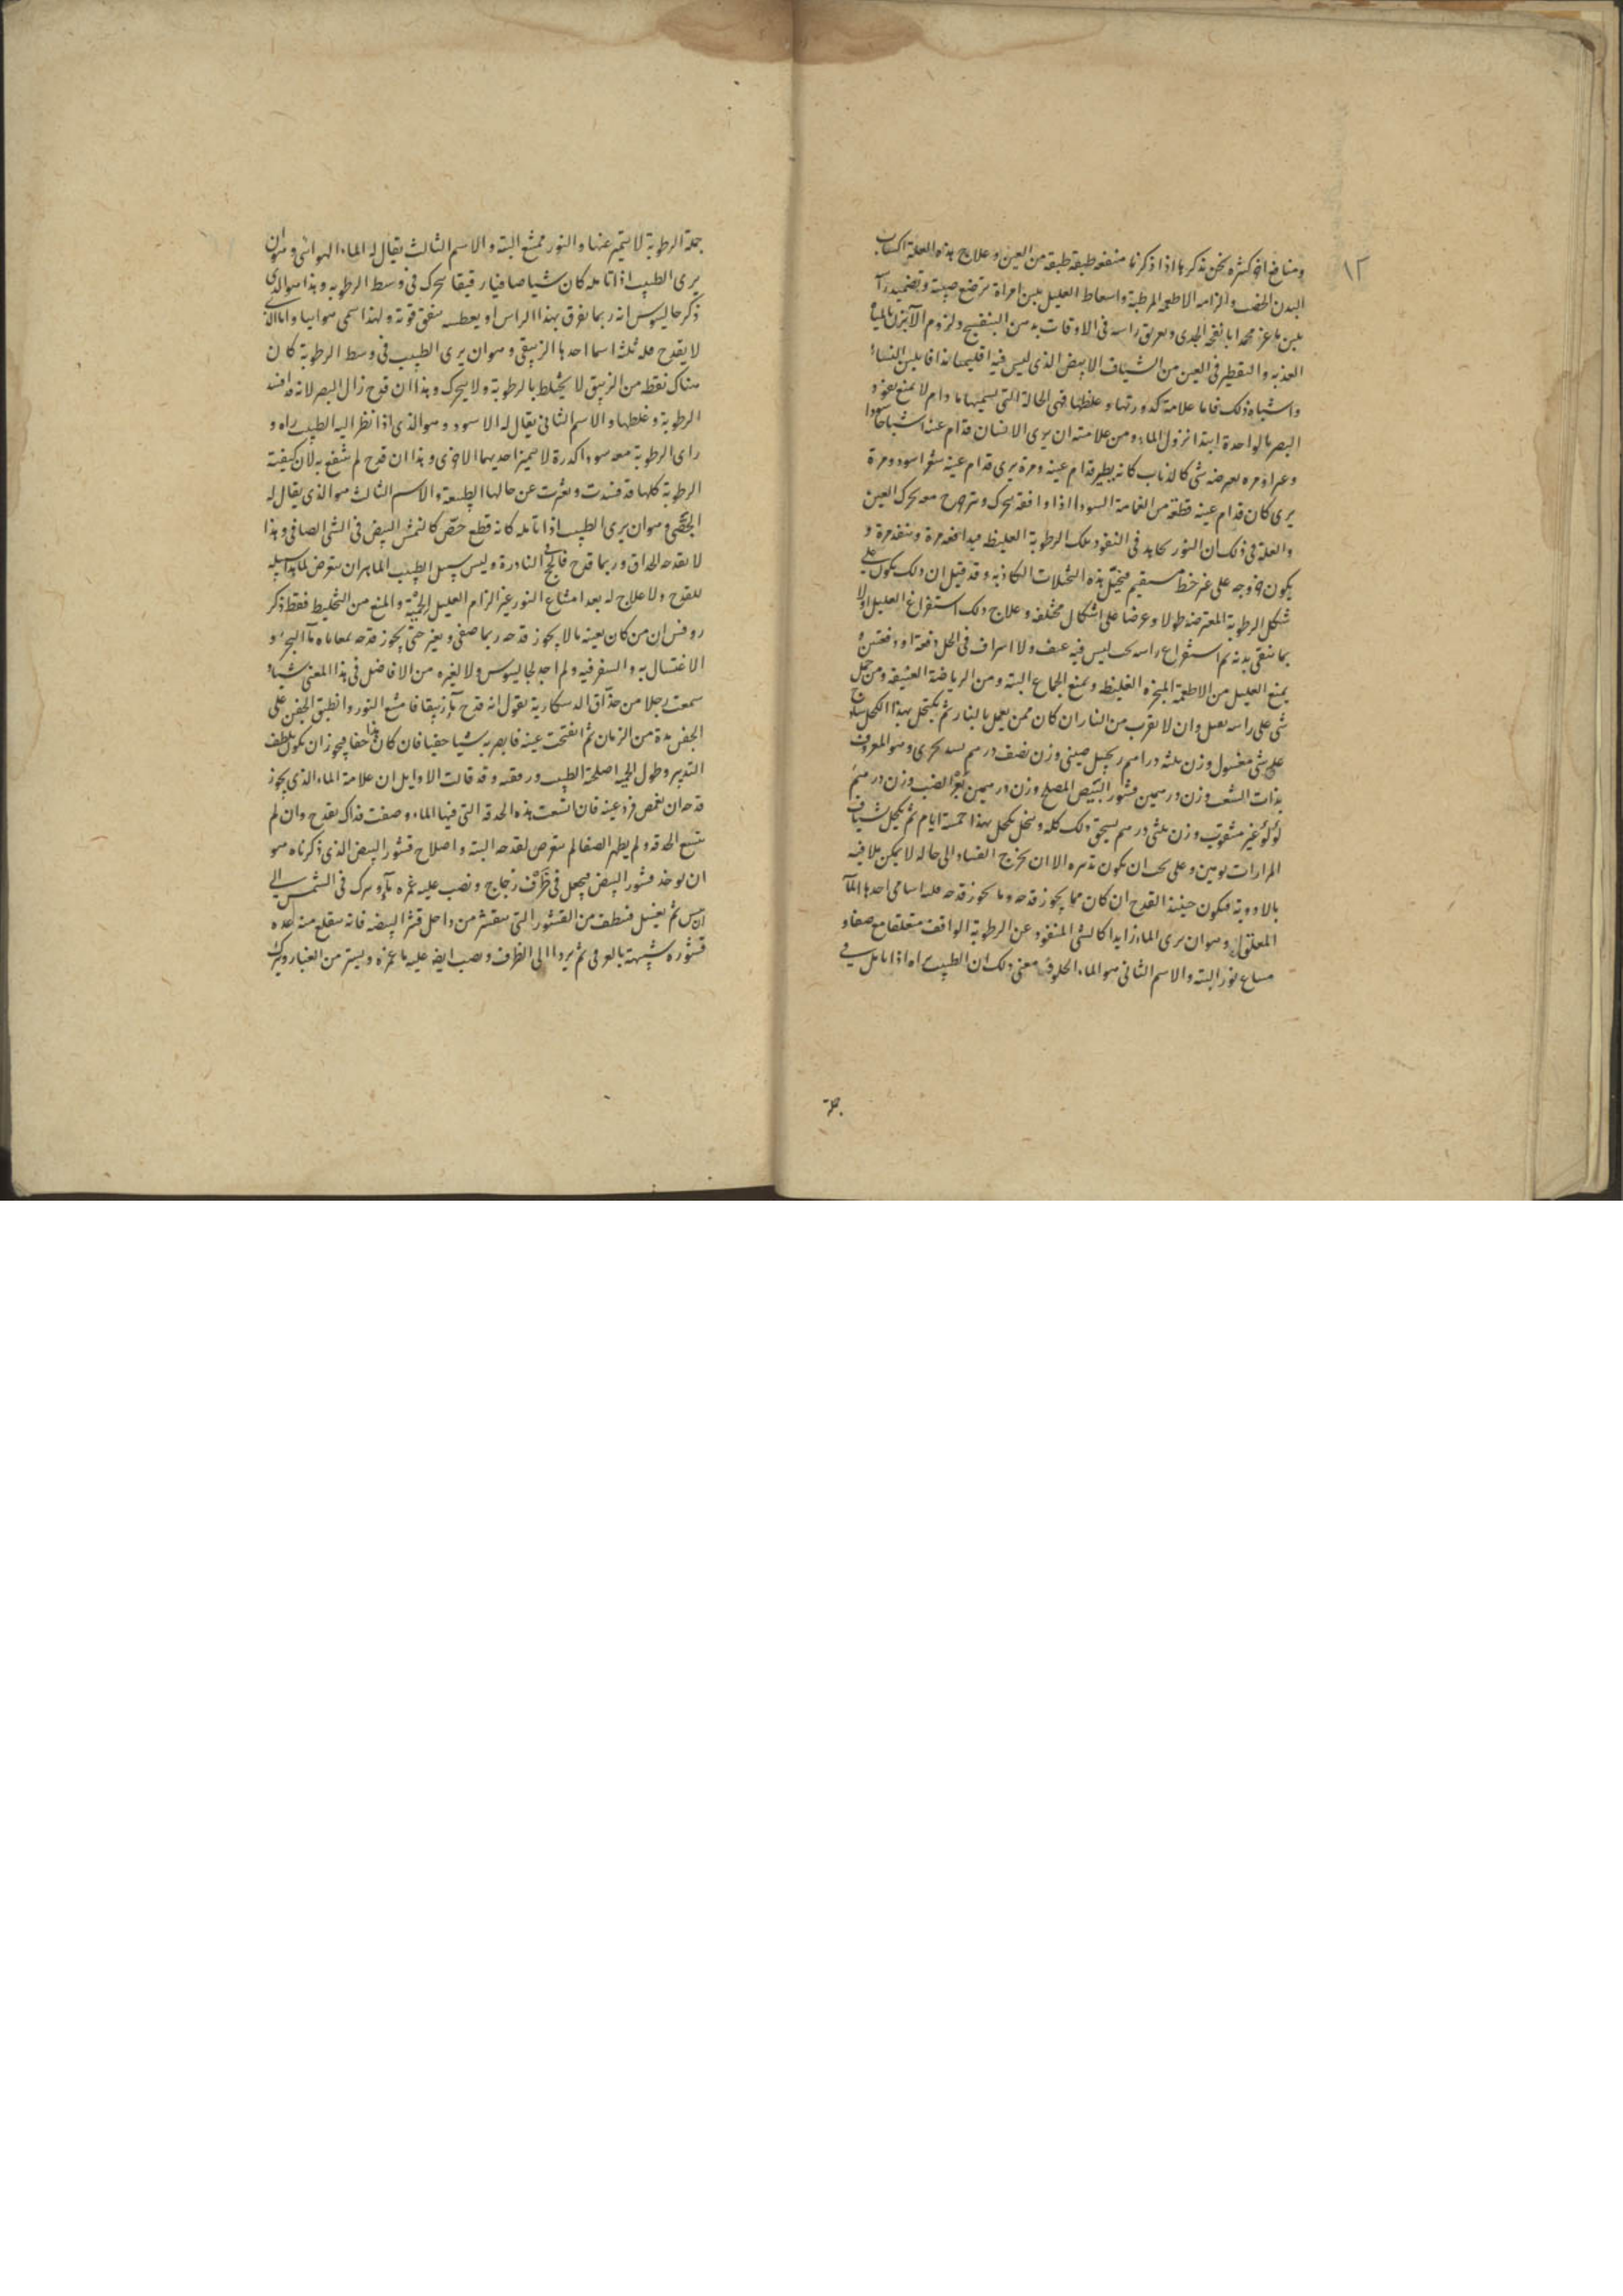 ١٢
ومنافع اخر كثيرة نحن نذكرها اذا ذكرنا منفعه طبقه طبقه من العين وعلاج هذه العلة اكتساب
البدن الخصب والزامه الاطعمه المرطبة واسعاط العليل بلبن امراة ترضع صبية وتضميد راسه
بلبن ماعز محمد بانفحة الجدى وتعريق راسه فى الاوقات بدهن البنفسج ولزوم الآبزن بالمياه
العذبه والتقطير فى العين من الشياف الابيض الذى ليس فيه اقليميا مذافا بلبن النساء
واشباه ذلك فاما علامة كدورتها وغلظها فهى الحالة التى يسميها ما دام لا يمنع نفوذ
البصر بالواحدة ابتدا نزول الماء ومن علامته ان يرى الانسان قدام عينه اشباحا سودا
ومرة يعرضه شى كالذباب كانه يطير قدام عينه ومرة يرى قدام عينه شعرا اسود ومرة
يرى كان قدام عينه قطعة من الغمامة السودا اذا وافقه تحرك وتترجرج معه تحرك العين
والعلة فى ذلك ان النور يكابد فى النفوذ تلك الرطوبة الغليظه فيدافعه مرة وينفذ مرة و
يكون خروجه على غير خط مستقيم فيتخيل هذه التخيلات الكاذبه وقد قيل ان ذلك يكون على
شكل الرطوبة المعترضه طولا وعرضا على اشكال مختلفه وعلاج ذلك استفراغ العليل اولا
بما ينقى بدنه ثم استفراغ راسه بحب ليس فيه عنف ولا اسراف فى الحل دفعة او دفعتين و
يمنع العليل من الاطعمة المبخره الغليظه ويمنع الجماع البته ومن الرياضة العنيفه ومن حمل
شى على راسه ثقيل وان لا يقرب من النار ان كان ممن يعمل بالنار ثم يكتحل بهذا الكحل
مغسول وزن ثلثه دراهم زنجبيل صينى وزن نصف درهم بحرى وهو المعروف
بذات الشعب وزن درهمين قشور البيض المصلح وزن درهمين بعر الضب وزن درهم
لؤلؤ غير مثقوب وزن ثلثى درهم يسحق ذلك كله وينخل ويكحل بهذا خمسة ايام ثم يكحل بشياف
المرارات يومين وعلى يجب ان يكون تدبيره الا ان يخرج الفساد الى حاله لا يمكن تلافيه
بالادوية فيكون حينئذ القدح ان كان مما يجوز قدحه وما يجوز قدحه فله اسامى احدها الماء
المعلق وهو ان يرى الماء زايدا كالشى المنفرد عن الرطوبة الواقف متعلقا مع صفا و
شعاع نور البته والاسم الثانى هو الماء الحلو معنى ذلك ان الطبيب يراه اذا تامل فى
جملة
جملة الرطوبة لا يتميز عنها والنور يمتنع البته والاسم الثالث يقال له الماء الهوائى وهو ان
يرى الطبيب اذا تامله كان شيا صافيا رقيقا تحرك فى وسط الرطوبه وهذا هو الذى
ذكر جالينوس انه ربما تفرق بهذا الراس او بعطسه متفق قوية ولهذا سمى هوائيا واما الذى
لا يقدح فله ثلثه اسما احدها الزيبقى وهو ان يرى الطبيب فى وسط الرطوبة كان
هناك نقطه من الزيبق لا يختلط بالرطوبة ولا يتحرك وهذا ان قدح زال البصر لانه قد افسد
الرطوبة وغلظها والاسم الثانى يقال له الاسود وهو الذى اذا نظر اليه الطبيب راه و
راى الرطوبة معه سودا كدرة لا تتميز احديهما الاخرى وهذا ان قدح لم ينتفع به لان كيفية
الرطوبة كلها قد فسدت وتغيرت عن حالها الطبيعة والاسم الثالث هو الذى يقال له
الجصى وهو ان يرى الطبيب اذا تامله كانه قطع جص كالنمش البيض فى الشى الصافى وهذا
لا يقدحه الحذاق وربما قدح فانجح فى النادرة وليس سبيل الطبيب الماهر ان يتعرض لما هذا سبيله
للقدح ولا علاج له بعد امتناع النور غير الزام العليل الحمية والمنع من التخليط فقط ذكر
روفس ان من كان بعينه ما لا يجوز قدحه ربما صفى وتغير حتى يجوز قدحه بمعاناه ماء البحر و
الاغتسال به والسفر فيه ولم اجد لجالينوس ولا لغيره من الافاضل فى هذا المعنى شيا و
سمعت رجلا من حذاق الدسكارية يقول انه قدح ماء زيبقا فامتنع النور وانطبق الجفن على
الجفن مدة من الزمان ثم انفتحت عينه فابصر به شيا خفيا فان كان هذا حقا فيجوز ان يكون لطف
التدبير وطول الحمية اصلحه الطبيب ورفقه وقد قالت الاوايل ان علامة الماء الذى يجوز
قدحه ان تغمض فرد عينه فان اتسعت هذه الحدقه التى فيها الماء وصفت فذاك يقدح وان لم
تتسع الحدقه ولم يظهر الصفا لم يتعرض لقدحه البته واصلاح قشور البيض الذى ذكرناه هو
ان يوخذ قشور البيض فيجعل فى ظرف زجاج ونصب عليه غمره ماء ويترك فى الشمس الى
ان ييبس ثم يغسل فينظف من القشور التى تتقشر من داخل قشر البيضه فانه يتقلع منه
قشوره شبيهة بالعرقى ثم يرد الى الظرف ويصب ايضه عليه ما غمره ويستر من الغبار ويترك